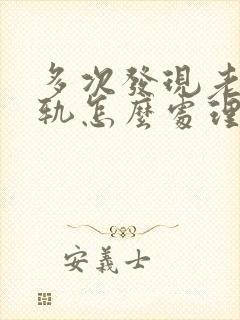 多次發現老
軌怎麼處理
安義士